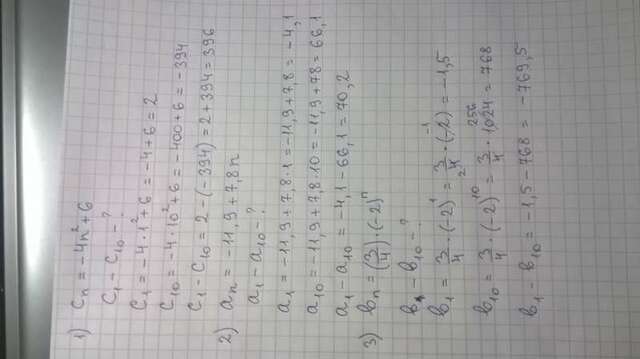 1) Cₙ = -4n² + 6
C₁ - C₁₀ - ?
C₁ = -4·1² + 6 = -4 + 6 = 2
C₁₀ = -4·10² + 6 = -400 + 6 = -394
C₁ - C₁₀ = 2 - (-394) = 2 + 394 = 396
2) aₙ = -11,9 + 7,8n
a₁ - a₁₀ - ?
a₁ = -11,9 + 7,8·1 = -11,9 + 7,8 = -4,1
a₁₀ = -11,9 + 7,8·10 = -11,9 + 78 = 66,1
a₁ - a₁₀ = -4,1 - 66,1 = 70,2
3) bₙ = (3/4)·(-2)ⁿ
b₁ - b₁₀ - ?
b₁ = 3/4·(-2)¹ = 3/4·(-2) = -1,5
b₁₀ = 3/4·(-2)¹⁰ = 3/4·1024 = 768
b₁ - b₁₀ = -1,5 - 768 = -769,5